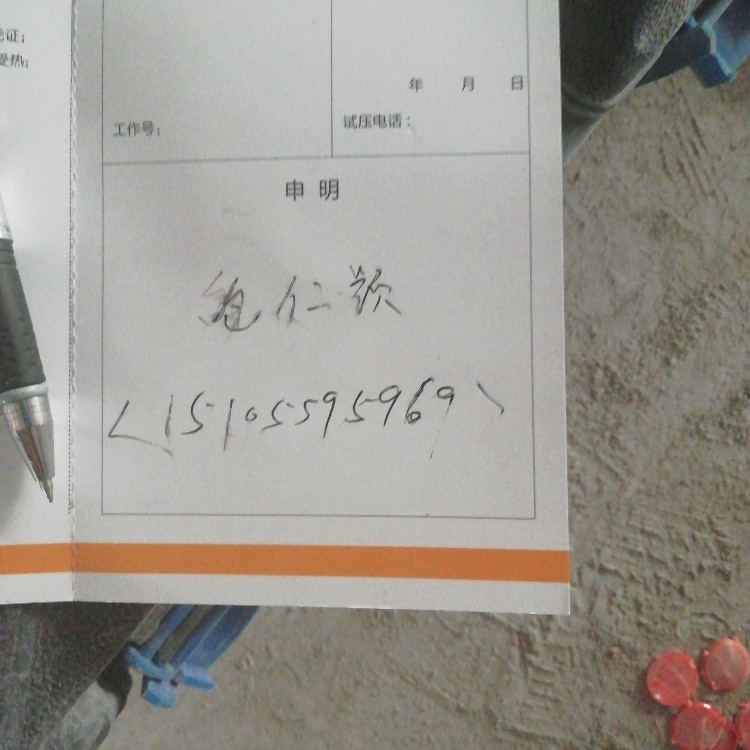 凭证;
受热;
年 月 日
工作号:
试压电话:
申明
仁颖
<15105595969>